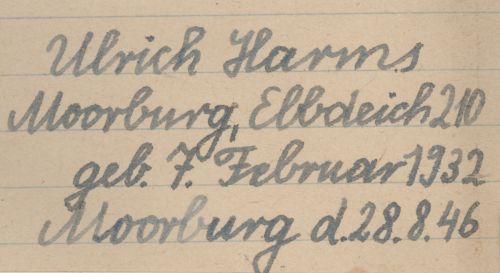 Ulrich Harms
Moorburg, Elbdeich 210
geb. 7. Februar 1932
Moorburg d. 28.8.46